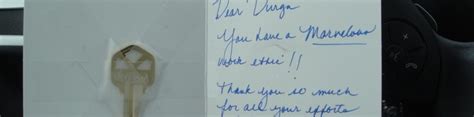 Dear Durga
You have a Marvelous
work ethic!!
Thank you so much
for all your efforts